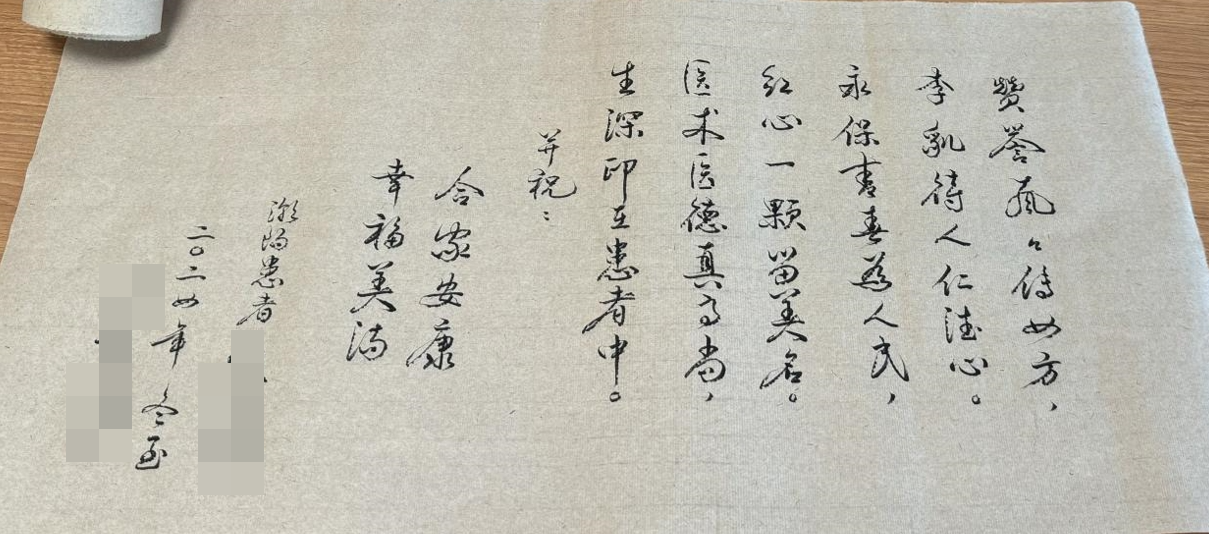 赞誉々传四方，
李待人仁心。
永保青春为人民，
红心一颗留美名。
医术医德真高尚，
生深印在患者中。
并祝：
合家安康
幸福美满
患者
二〇二四年冬至